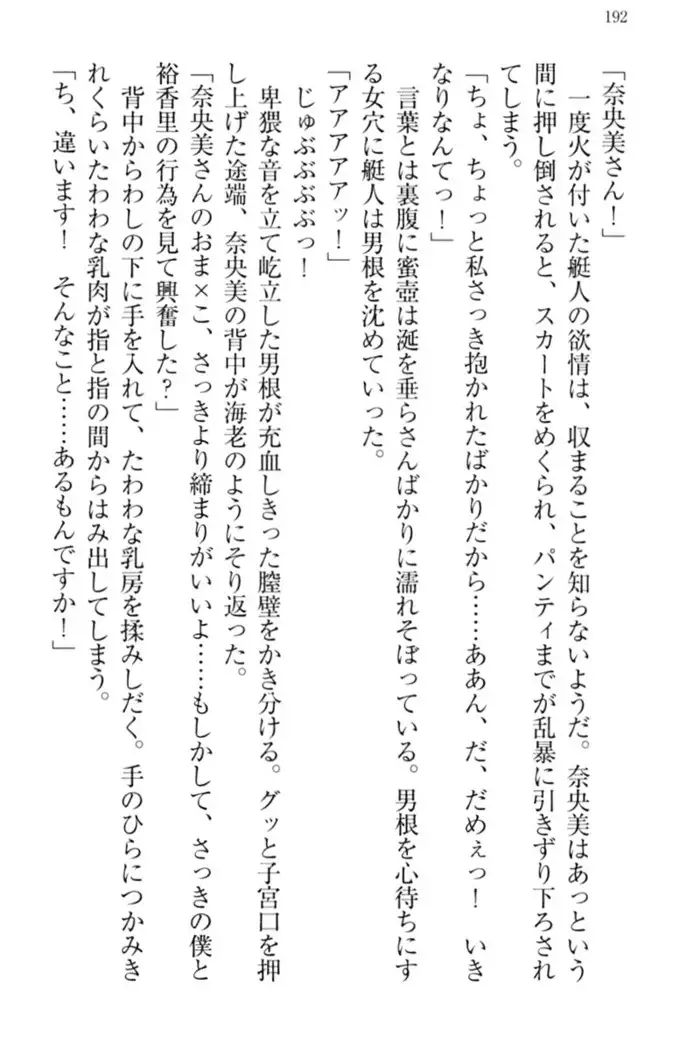 192
「奈央美さん！」
一度火が付いた艇人の欲情は、収まることを知らないようだ。奈央美はあっという
間に押し倒されると、スカートをめくられ、パンティまでが乱暴に引きずり下ろされ
てしまう。
「ちょ、ちょっと私さっき抱かれたばかりだから……ああん、だ、だめぇっ！　いき
なりなんてっ！」
言葉とは裏腹に蜜壺は涎を垂らさんばかりに濡れそぼっている。男根を心待ちにす
る女穴に艇人は男根を沈めていった。
「アアアアアッ！」
じゅぶぶぶぶっ！
卑猥な音を立て屹立した男根が充血しきった膣壁をかき分ける。グッと子宮口を押
し上げた途端、奈央美の背中が海老のようにそり返った。
「奈央美さんのおま×こ、さっきより締まりがいいよ……もしかして、さっきの僕と
裕香里の行為を見て興奮した？」
背中からわしの下に手を入れて、たわわな乳房を揉みしだく。手のひらにつかみき
れくらいたわわな乳肉が指と指の間からはみ出してしまう。
「ち、違います！　そんなこと……あるもんですか！」